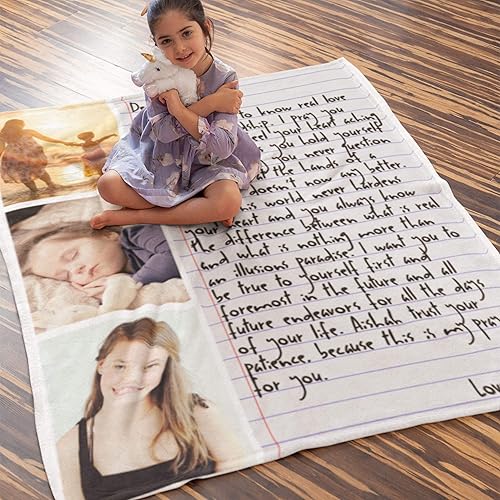 D
to know real love
I pray you
feel your heart aching
you hold yourself
you never question
the hands of a
doesn't now any better.
world ever hardens
your heart and you always know
the difference between what is real
and what is nothing more than
an illusions paradise. I want you to
be true to yourself first and
foremost in the future and all
future endeavors for all the days
of your life. Aishah, trust your
patience, because this is my pra
for you.
Lov